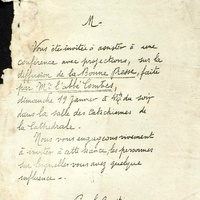 M—
Vous êtes invité à assister à une
conférence avec projections, sur la
diffusion de la Bonne Presse, faite
par Mr l'abbé Combes,
dimanche 19 janvier à du soir
dans la salle des Catéchismes de
la Cathédrale.
Nous vous engageons vivement
à inviter à cette séance, les personnes
sur lesquelles vous avez quelque
influence —